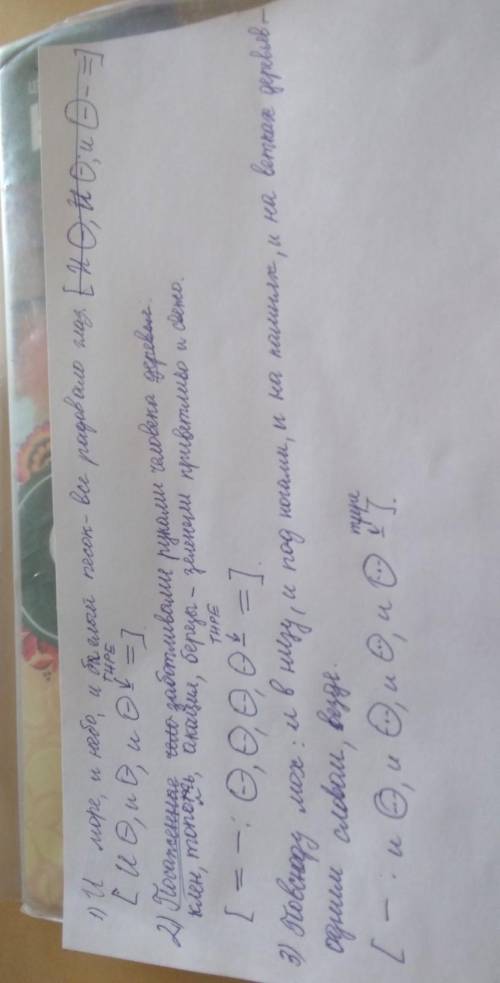 1) И море, и небо, и белый песок - все радовало глаз. [И О, И О, и О - =]
[И О, и О, и О тире =].
2) Посаженные заботливыми руками человека деревья:
клен, тополь, акации, березы - зеленели приветливо и свежо.
[= — : О, О, О, О тире =].
3) Повсюду мох: и в низу, и под ногами, и на камнях, и на ветках деревьев -
одним словом, везде.
[— : и О, и О, и О, и О тире].